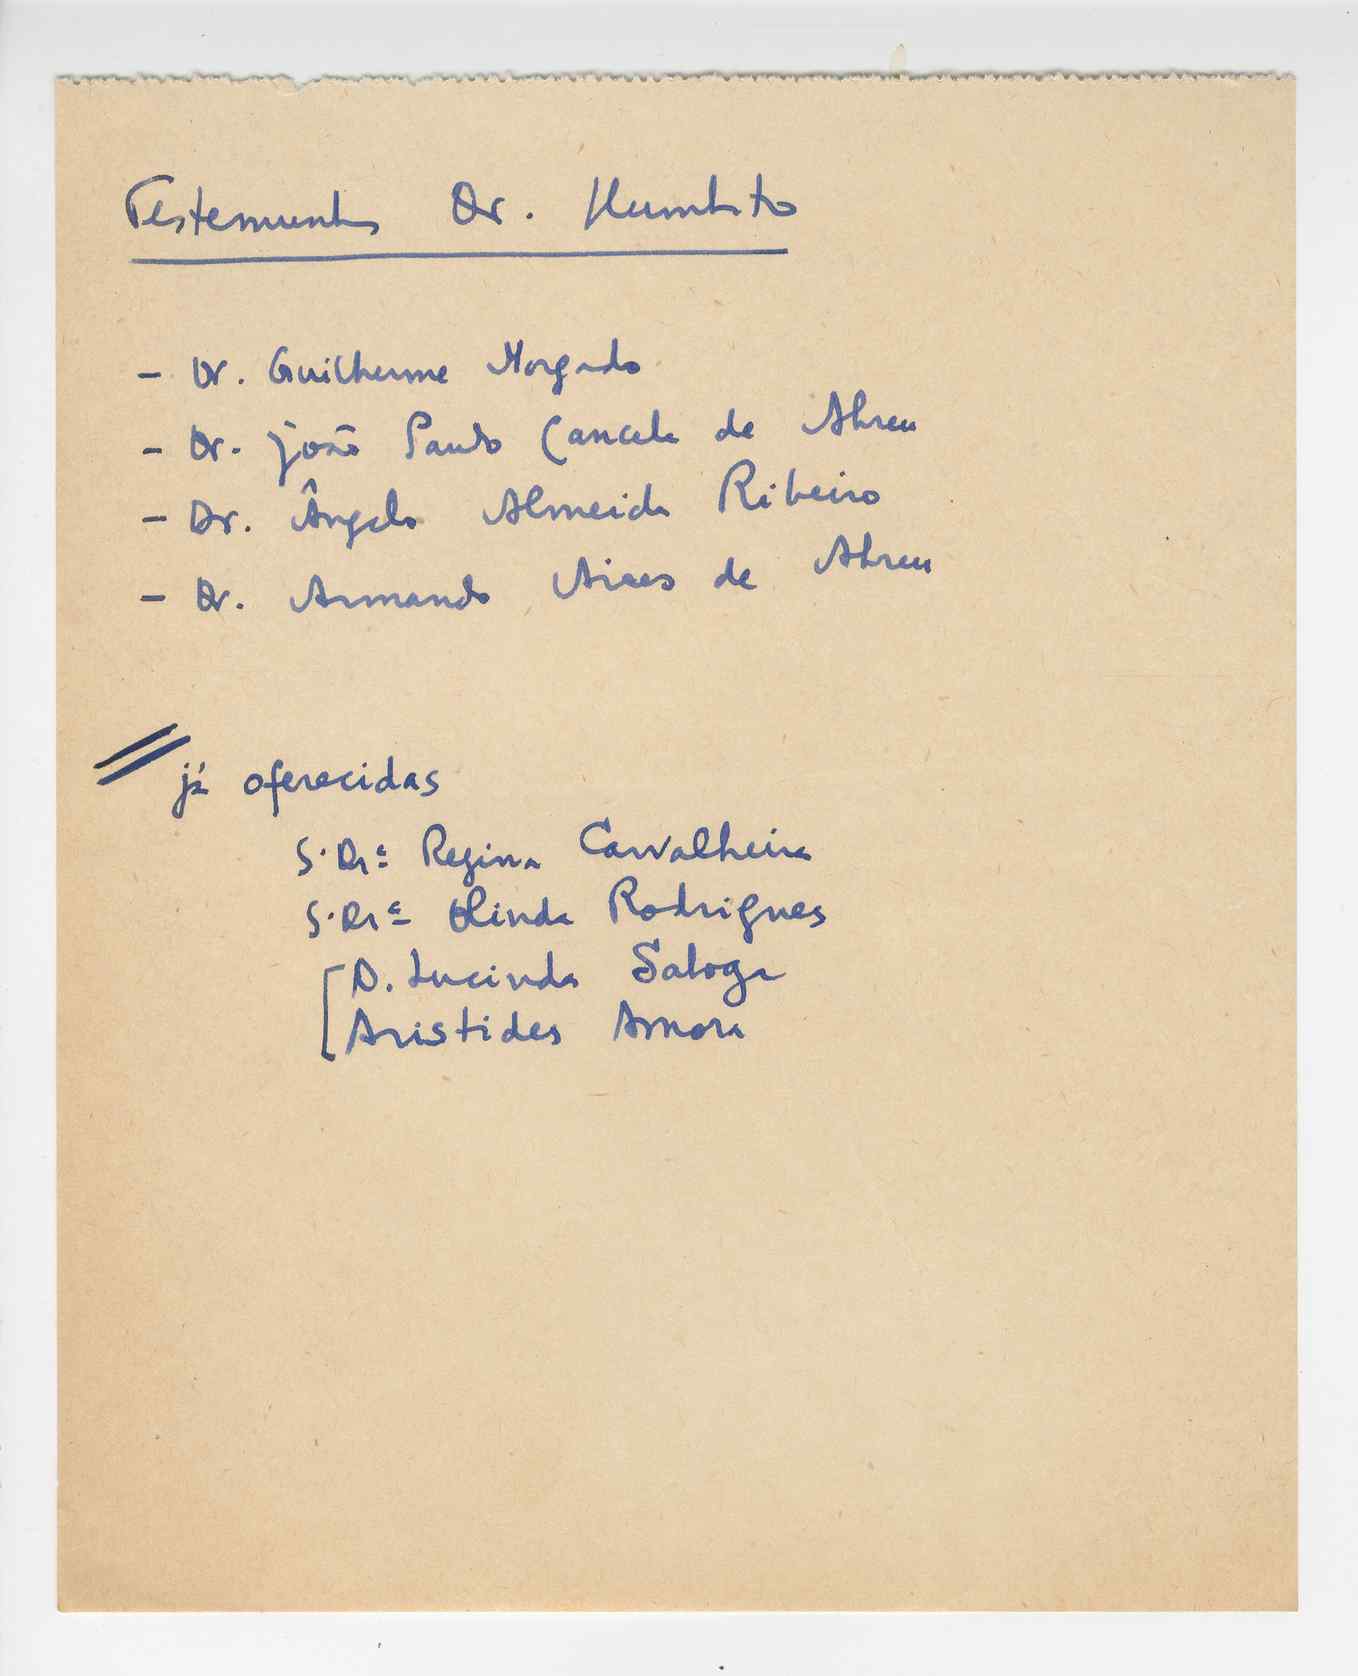 Testemunhas Dr. Humberto
- Dr. Guilherme Morgado
- Dr. João Paulo Cancela de Abreu
- Dr. Ângelo Almeida Ribeiro
- Dr. Armando Aires de Abreu
já oferecidas
S. Drª Regina Carvalheira
S. Drª Olinda Rodrigues
D. Lucinda Saboga
Aristides Amora